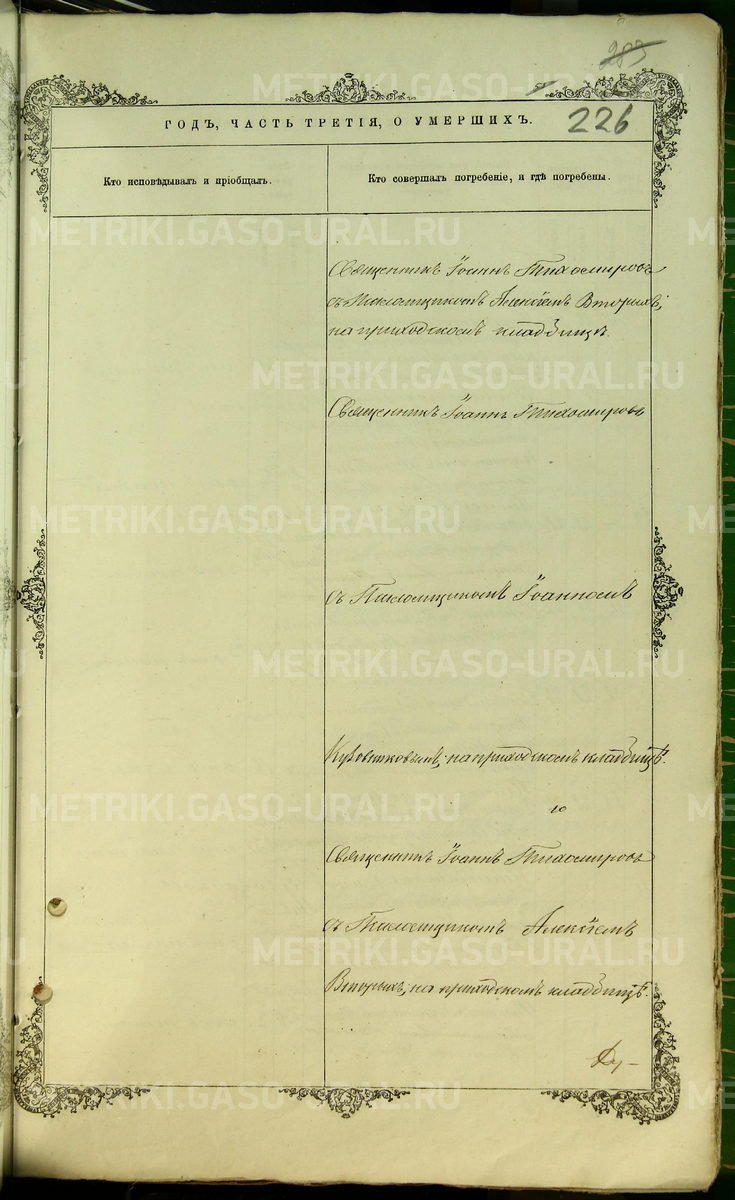 283
226
ГОДЪ, ЧАСТЬ ТРЕТІЯ, О УМЕРШИХЪ.
Кто исповѣдывалъ и пріобщалъ.
Кто совершалъ погребеніе, и гдѣ погребены.
Священникъ Іоаннъ Тихомировъ
съ Псаломщикомъ Алексѣемъ Вторыхъ;
на приходскомъ кладбищѣ.
Священникъ Іоаннъ Тихомировъ
съ Псаломщикомъ Іоанномъ
на приходскомъ кладбищѣ.
ю
Священникъ Іоаннъ Тихомировъ
съ Псаломщикомъ Алексѣемъ
Вторыхъ; на приходскомъ кладбищѣ.
METRIKI.GASO-URAL.RU